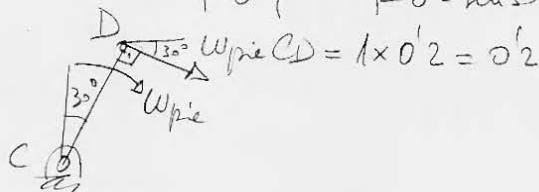 D
30° ωpie CD = 1 × 0'2 = 0'2
30°
ωpie
C